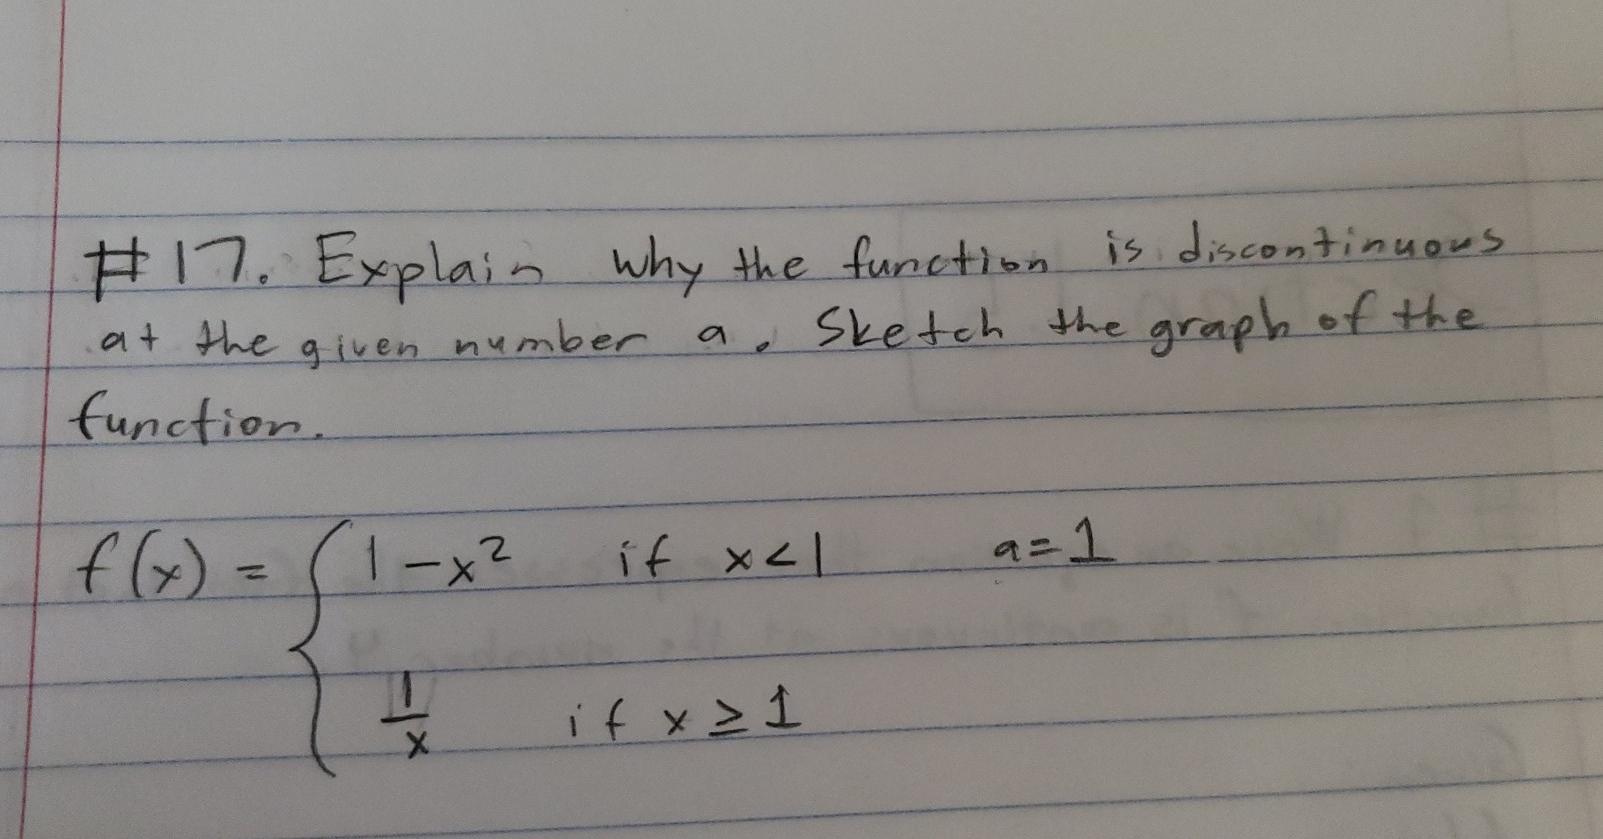 #17. Explain why the function is discontinuous
at the given number a. Sketch the graph of the
function.
f(x) = { 1-x² if x<1 a=1
1/x if x≥1